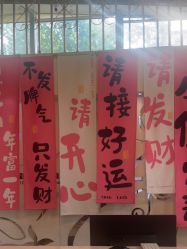 不发脾气
只发财
年富一年
请开心
请接好运
请发财